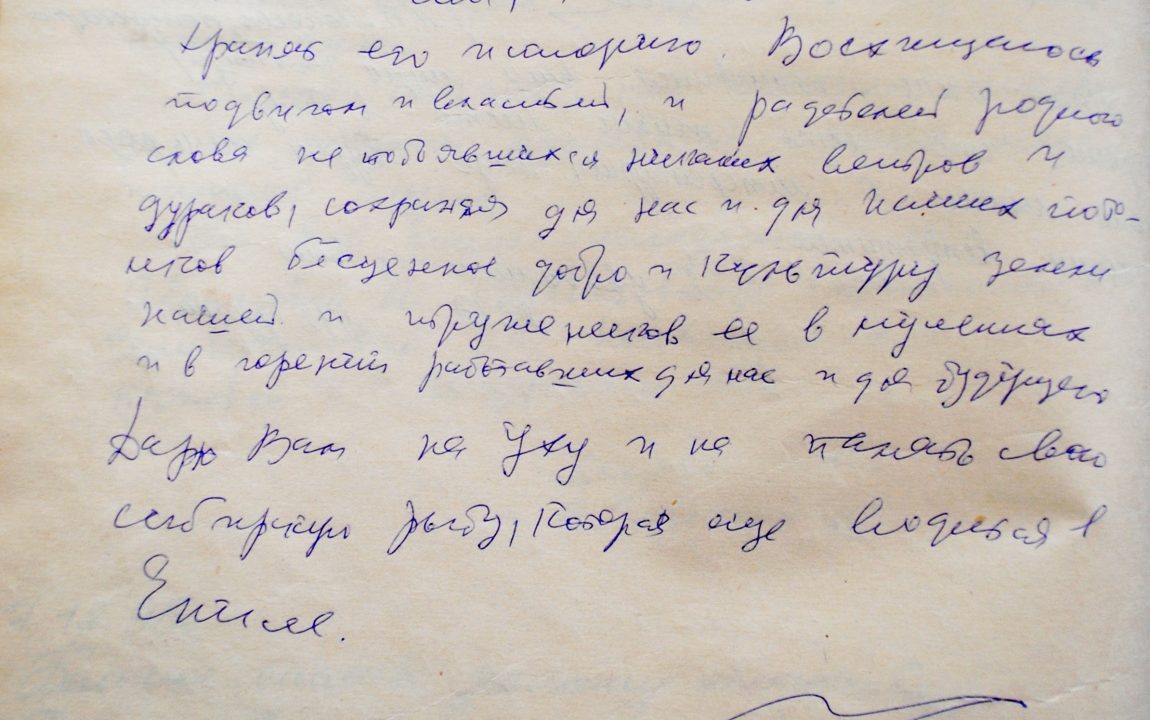 хранят его историю. Восхищаюсь
подвигом и властей, и радетелей родного
слова не побоявшихся никаких ветров и
дураков, сохраняя для нас и для наших пото-
мков бесценное добро и культуру земли
нашей и тружеников ее в мучениях
и в горении работавших для нас и для будущего
Дарю Вам на уху и на память свою
сибирскую рыбу, которая еще водится в
Енисее.